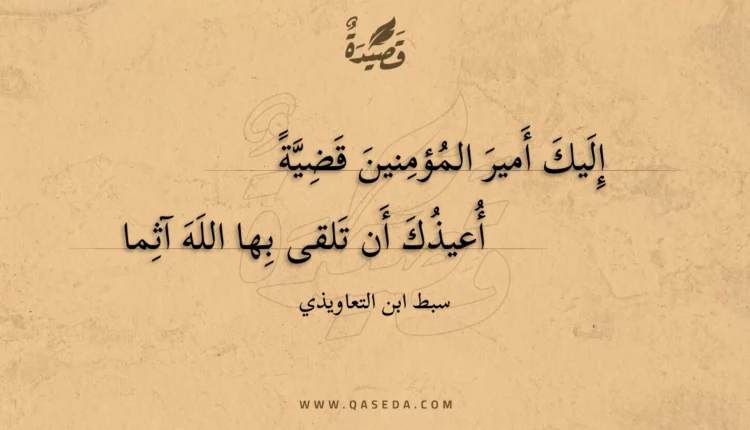 قَصِيْدَةٌ
إِلَيكَ أَميرَ المُؤمِنينَ قَضِيَّةً
أُعيذُكَ أَن تَلقى بِها اللَهَ آثِما
سبط ابن التعاويذي
WWW.QASEDA.COM